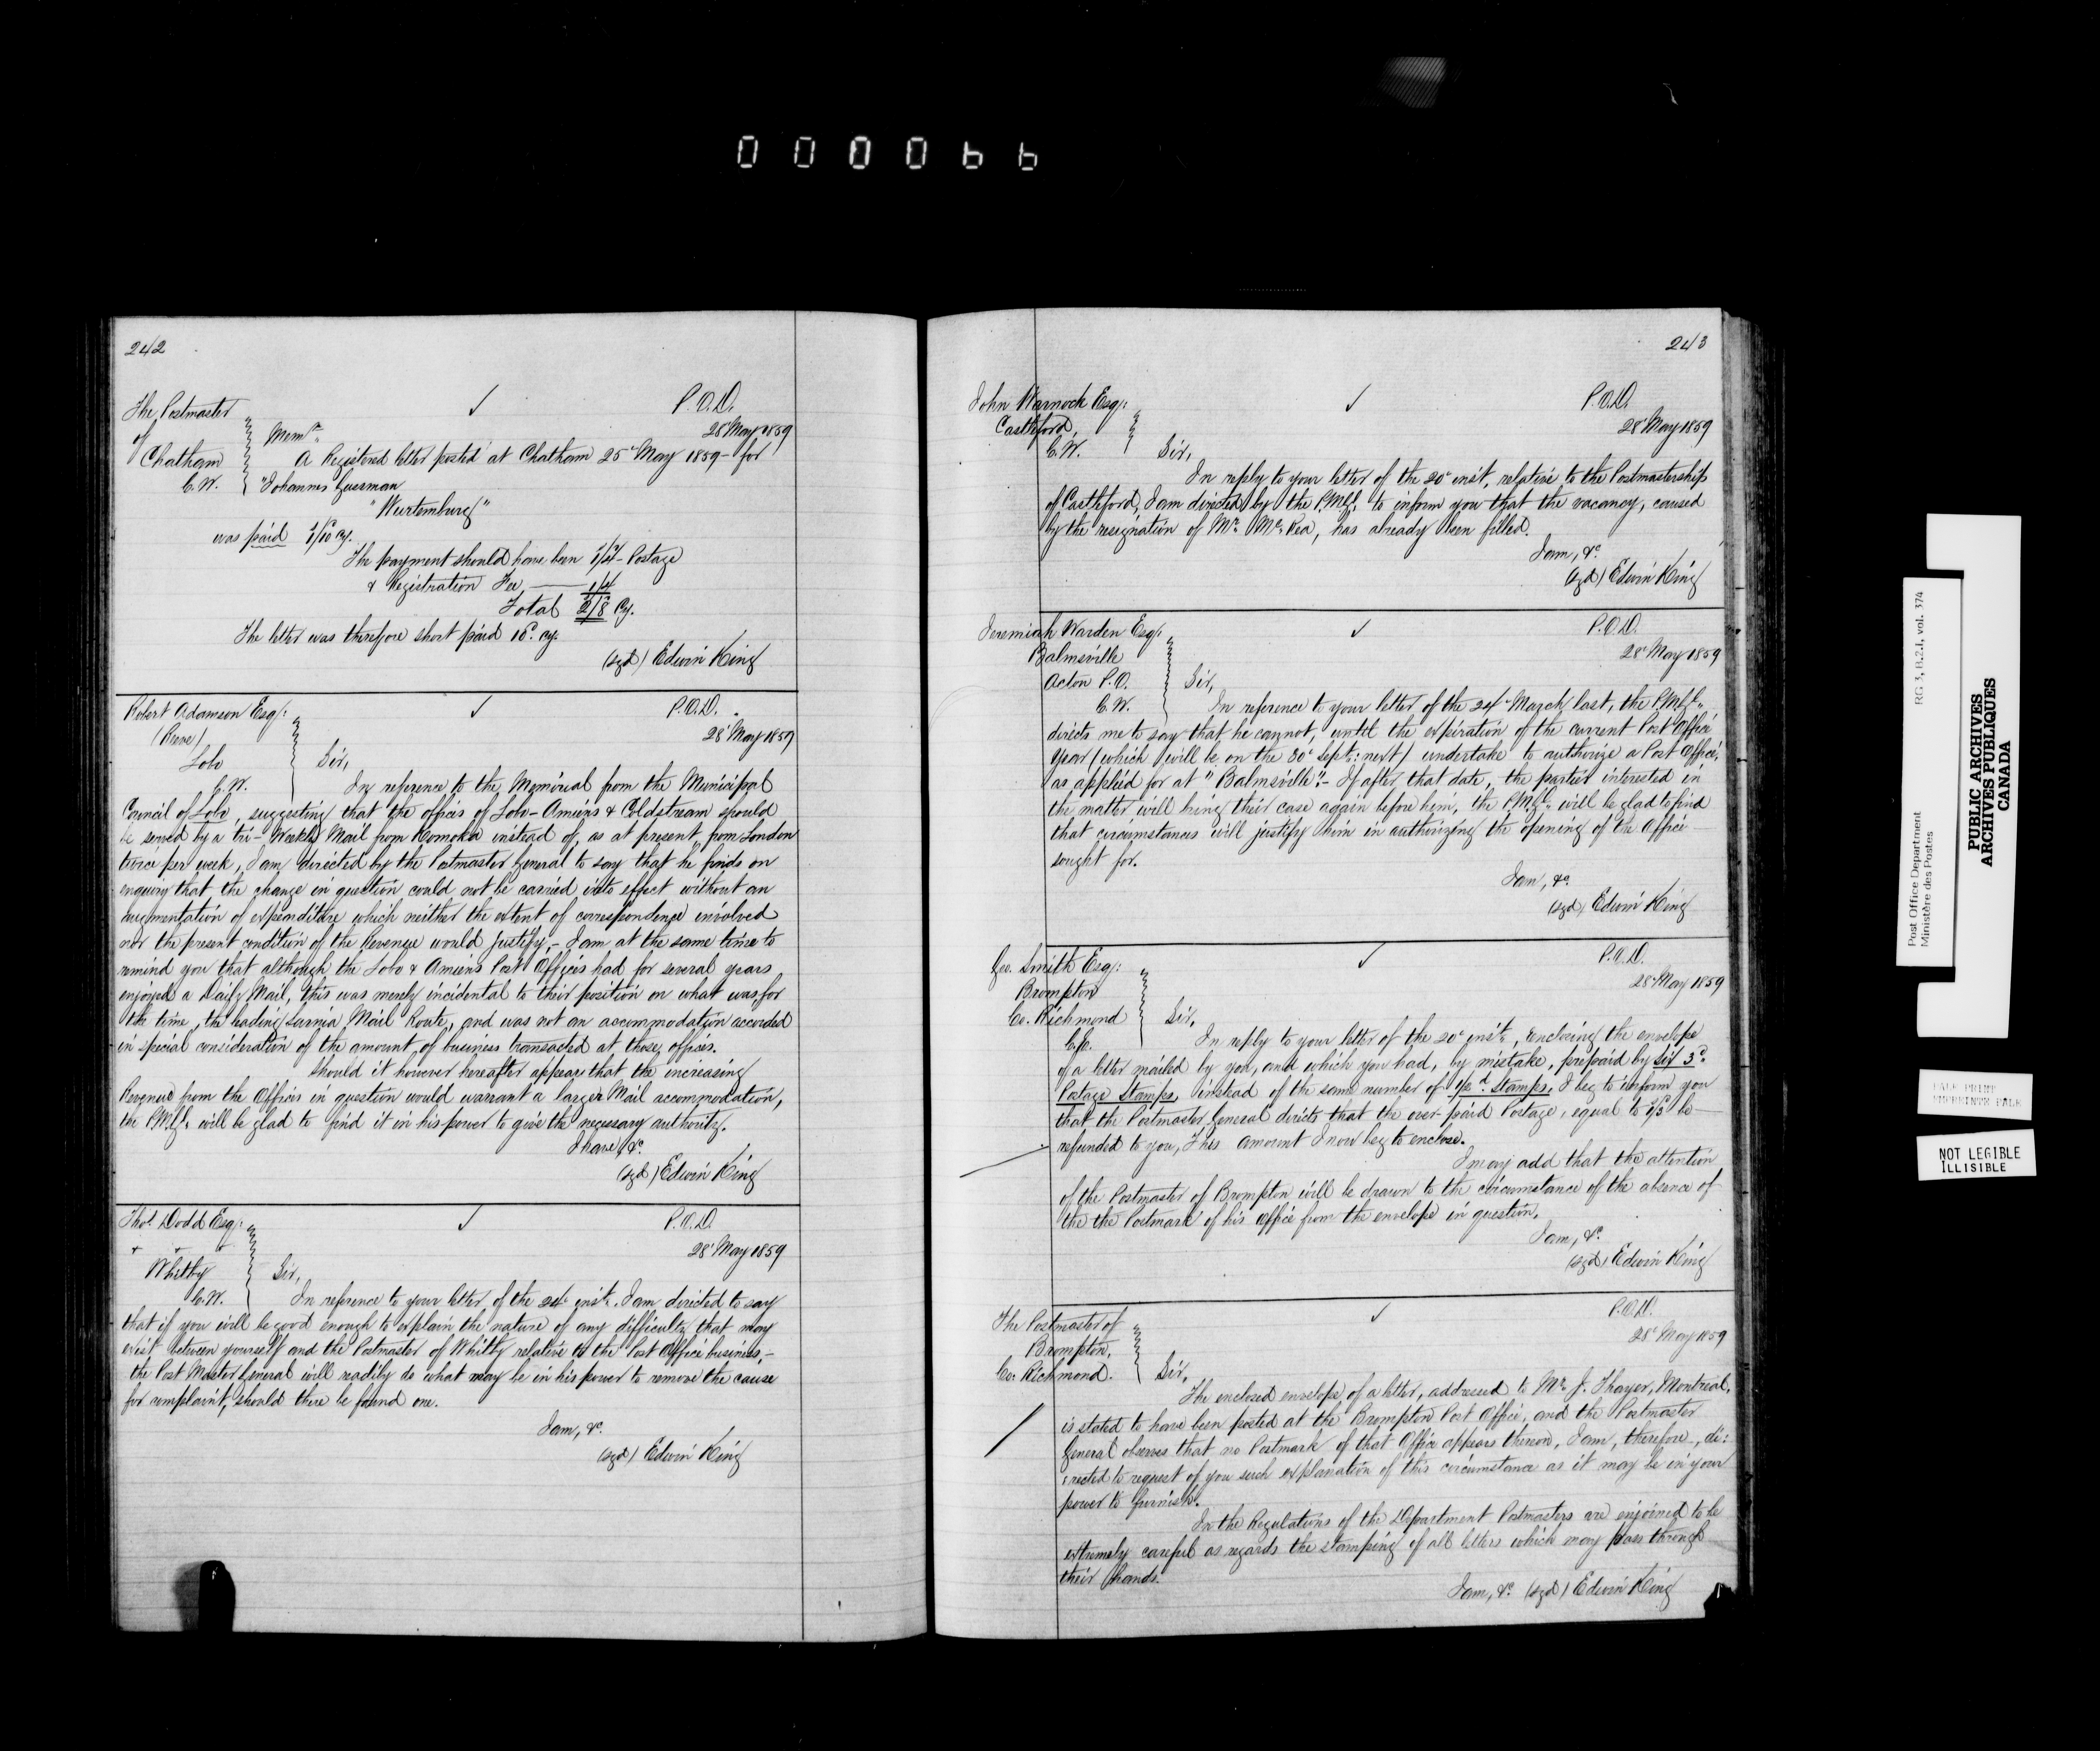 000066
242
The Postmaster
of
Chatham
C.W.
P.O.D.
28 May 1859
Memm.
A Registered letter posted at Chatham 25 May 1859 - for
"Johannes Guesman
"Wurtemburg"
was paid 1/10 cy.
The payment should have been 1/4 - Postage
& Registration Fee 1/4
Total 2/8 Cy.
The letter was therefore short paid 10d. cy.
(sgd) Edwin King
Robert Adamson Esq:
(Reeve)
Lobo
C.W.
P.O.D.
28 May 1859
Sir,
In reference to the Memorial from the Municipal
Council of Lobo, suggesting that the offices of Lobo - Amiens & Coldstream should
be served by a tri-Weekly Mail from Komoka instead of, as at present, from London
twice per week, I am directed by the Postmaster General to say that he finds on
enquiry that the change in question could not be carried into effect without an
augmentation of expenditure which neither the extent of correspondence involved
nor the present condition of the Revenue would justify, - I am at the same time to
remind you that although the Lobo & Amiens Post Offices had for several years
enjoyed a Daily Mail, this was merely incidental to their position on what was, for
the time, the leading Sarnia Mail Route, and was not an accommodation accorded
in special consideration of the amount of business transacted at those offices.
Should it however hereafter appear that the increasing
Revenue from the Offices in question would warrant a larger Mail accommodation,
the P.M.G. will be glad to find it in his power to give the necessary authority.
I have, &c.
(sgd) Edwin King
Thos. Dodd Esq:
Whitby
C.W.
P.O.D.
28 May 1859
Sir,
In reference to your letter of the 24 inst. I am directed to say
that if you will be good enough to explain the nature of any difficulty that may
exist between yourself and the Postmaster of Whitby relative to the Post Office business, -
the Post Master General will readily do what may be in his power to remove the cause
for complaint, should there be found one.
I am, &c.
(sgd) Edwin King
243
John Warnock Esq:
Castleford,
C.W.
P.O.D.
28 May 1859
Sir,
In reply to your letter of the 20 inst, relative to the Postmastership
of Castleford, I am directed by the P.M.G. to inform you that the vacancy, caused
by the resignation of Mr. McRea, has already been filled.
I am, &c
(sgd) Edwin King
Jeremiah Warden Esq:
Balmsville
Acton P.O.
C.W.
P.O.D.
28 May 1859
Sir,
In reference to your letter of the 24 March last, the P.M.G.
directs me to say that he cannot, until the expiration of the current Post Office
Year (which will be on the 30 Sept: next) undertake to authorize a Post Office,
as applied for at "Balmsville". - If after that date, the parties interested in
the matter will bring their case again before him, the P.M.G. will be glad to find
that circumstances will justify him in authorizing the opening of the Office
sought for.
I am, &c.
(sgd) Edwin King
Geo. Smith Esq:
Brompton
Co. Richmond
C.E.
P.O.D.
28 May 1859
Sir,
In reply to your letter of the 20 inst, enclosing the envelope
of a letter mailed by you, and which you had, by mistake, prepaid by six 3d.
Postage Stamps, instead of the same number of stamps, I beg to inform you
that the Postmaster General directs that the over-paid Postage, equal to 1/3 be
refunded to you, This amount I now beg to enclose.
I may add that the attention
of the Postmaster of Brompton will be drawn to the circumstance of the absence of
the the Postmark of his Office from the envelope in question.
I am, &c.
(sgd) Edwin King
The Postmaster of
Brompton,
Co. Richmond.
P.O.D.
28 May 1859
Sir,
The enclosed envelope of a letter, addressed to Mr. J. Thayer, Montreal,
is stated to have been posted at the Brompton Post Office, and the Postmaster
General observes that no Postmark of that Office appears thereon, I am, therefore, di:
rected to request of you such explanation of this circumstance as it may be in your
power to furnish.
In the Regulations of the Department Postmasters are enjoined to be
extremely careful as regards the stamping of all letters which may pass through
their hands.
I am, &c. (sgd) Edwin King
Post Office Department
Ministère des Postes
RG 3, B.2.1, vol. 374
PUBLIC ARCHIVES
ARCHIVES PUBLIQUES
CANADA
PALE PRINT
IMPRIMTE PALE
NOT LEGIBLE
ILLISIBLE